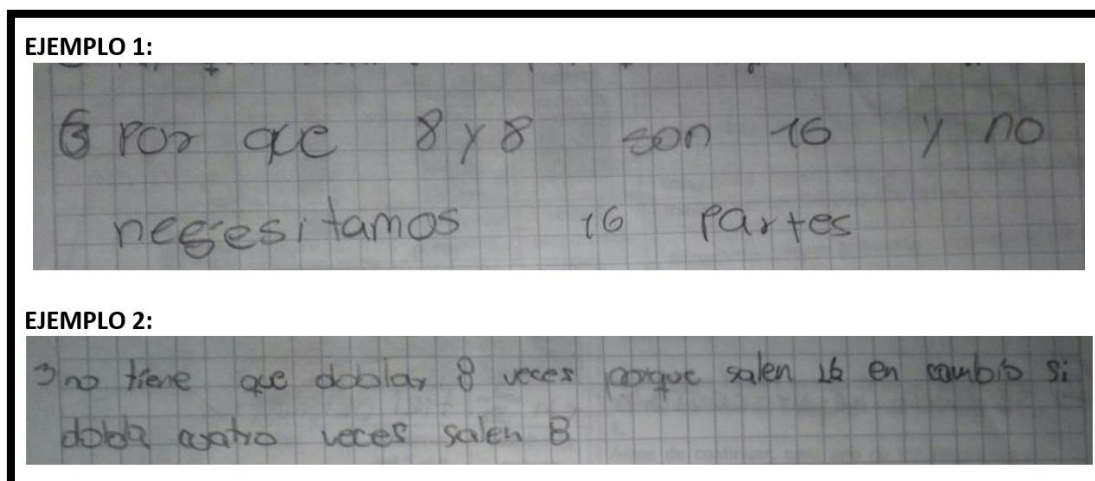 EJEMPLO 1:
3 Por que 8 y 8 son 16 y no
negesitamos 16 partes
EJEMPLO 2:
3 no tiene que doblar 8 veces porque salen 16 en cambio si
dobla cuatro veces salen 8